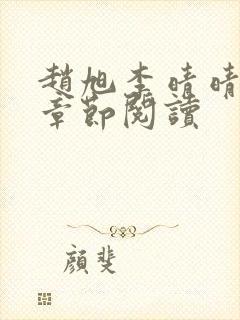 趙旭李晴晴
章節閱讀
顏斐